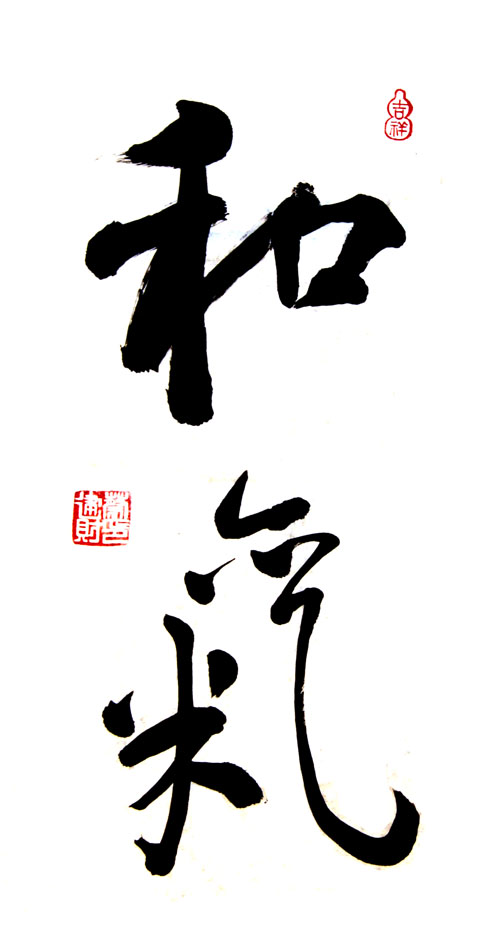 和
氣
吉祥